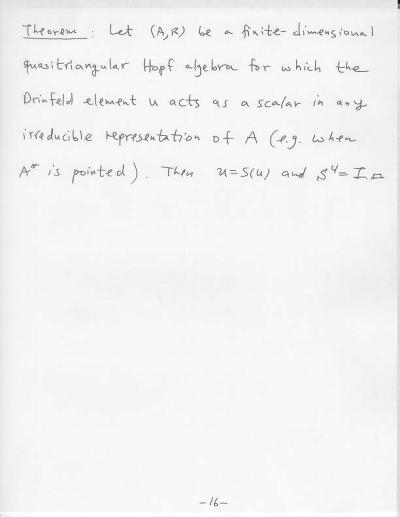 Theorem : Let (A,R) be a finite-dimensional
quasitriangular Hopf algebra for which the
Drinfeld element u acts as a scalar in any
irreducible representation of A (e.g. when
A* is pointed). Then u=S(u) and S⁴=I □
-16-